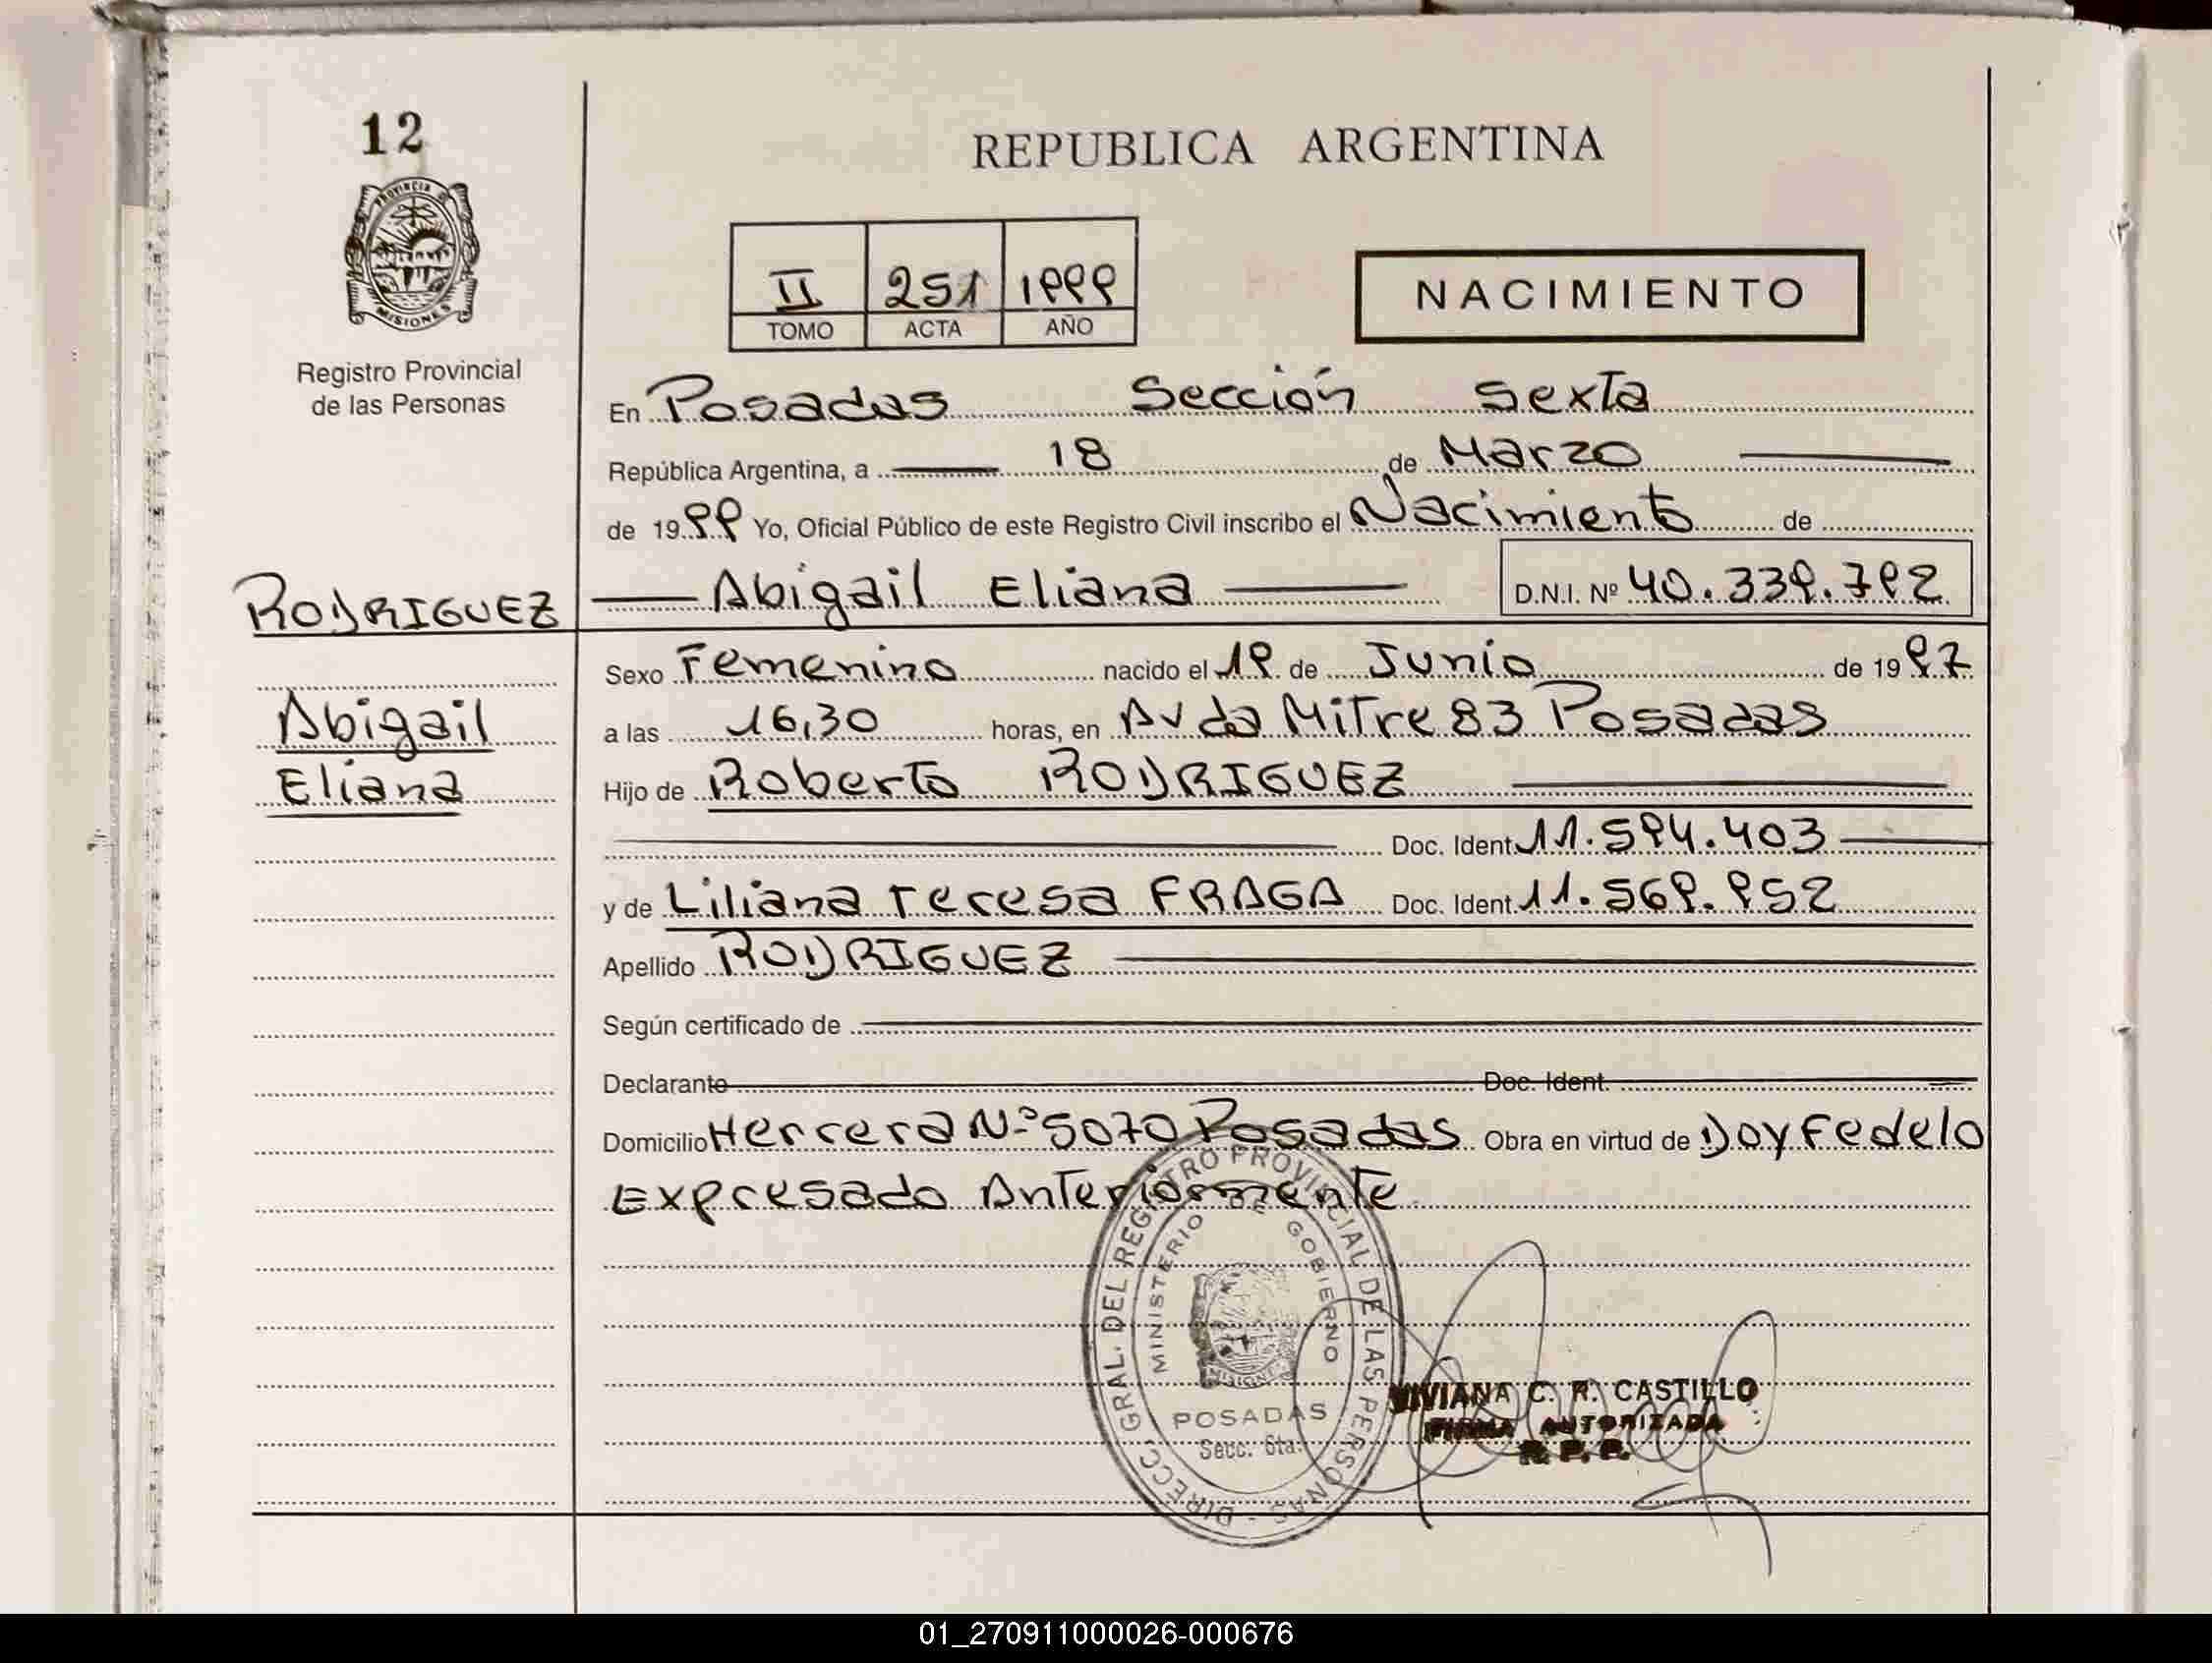 12
PROVINCIA
MISIONES
Registro Provincial
de las Personas
RODRIGUEZ
Abigail
Eliana
REPUBLICA ARGENTINA
II 251 1999
TOMO ACTA AÑO
NACIMIENTO
En Posadas Sección Sexta
República Argentina, a 18 de Marzo
de 1999 Yo, Oficial Público de este Registro Civil inscribo el Nacimiento de
Abigail Eliana D.N.I. Nº 40.339.792
Sexo Femenino nacido el 19 de Junio de 1997
a las 16,30 horas, en Avda Mitre 83 Posadas
Hijo de Roberto RODRIGUEZ
Doc. Ident. 11.594.403
y de Liliana Teresa FRAGA Doc. Ident. 11.569.952
Apellido RODRIGUEZ
Según certificado de
Declarante Doc. Ident.
Domicilio Herrera N° 5070 Posadas Obra en virtud de Doy Fe de lo
Expresado Anteriormente
DIRECC. GRAL. DEL REGISTRO PROVINCIAL DE LAS PERSONAS -
MINISTERIO DE GOBIERNO
MISIONES
POSADAS
Secc. 6ta.
VIVIANA C. R. CASTILLO
FIRMA AUTORIZADA
R. P. P.
01_270911000026-000676